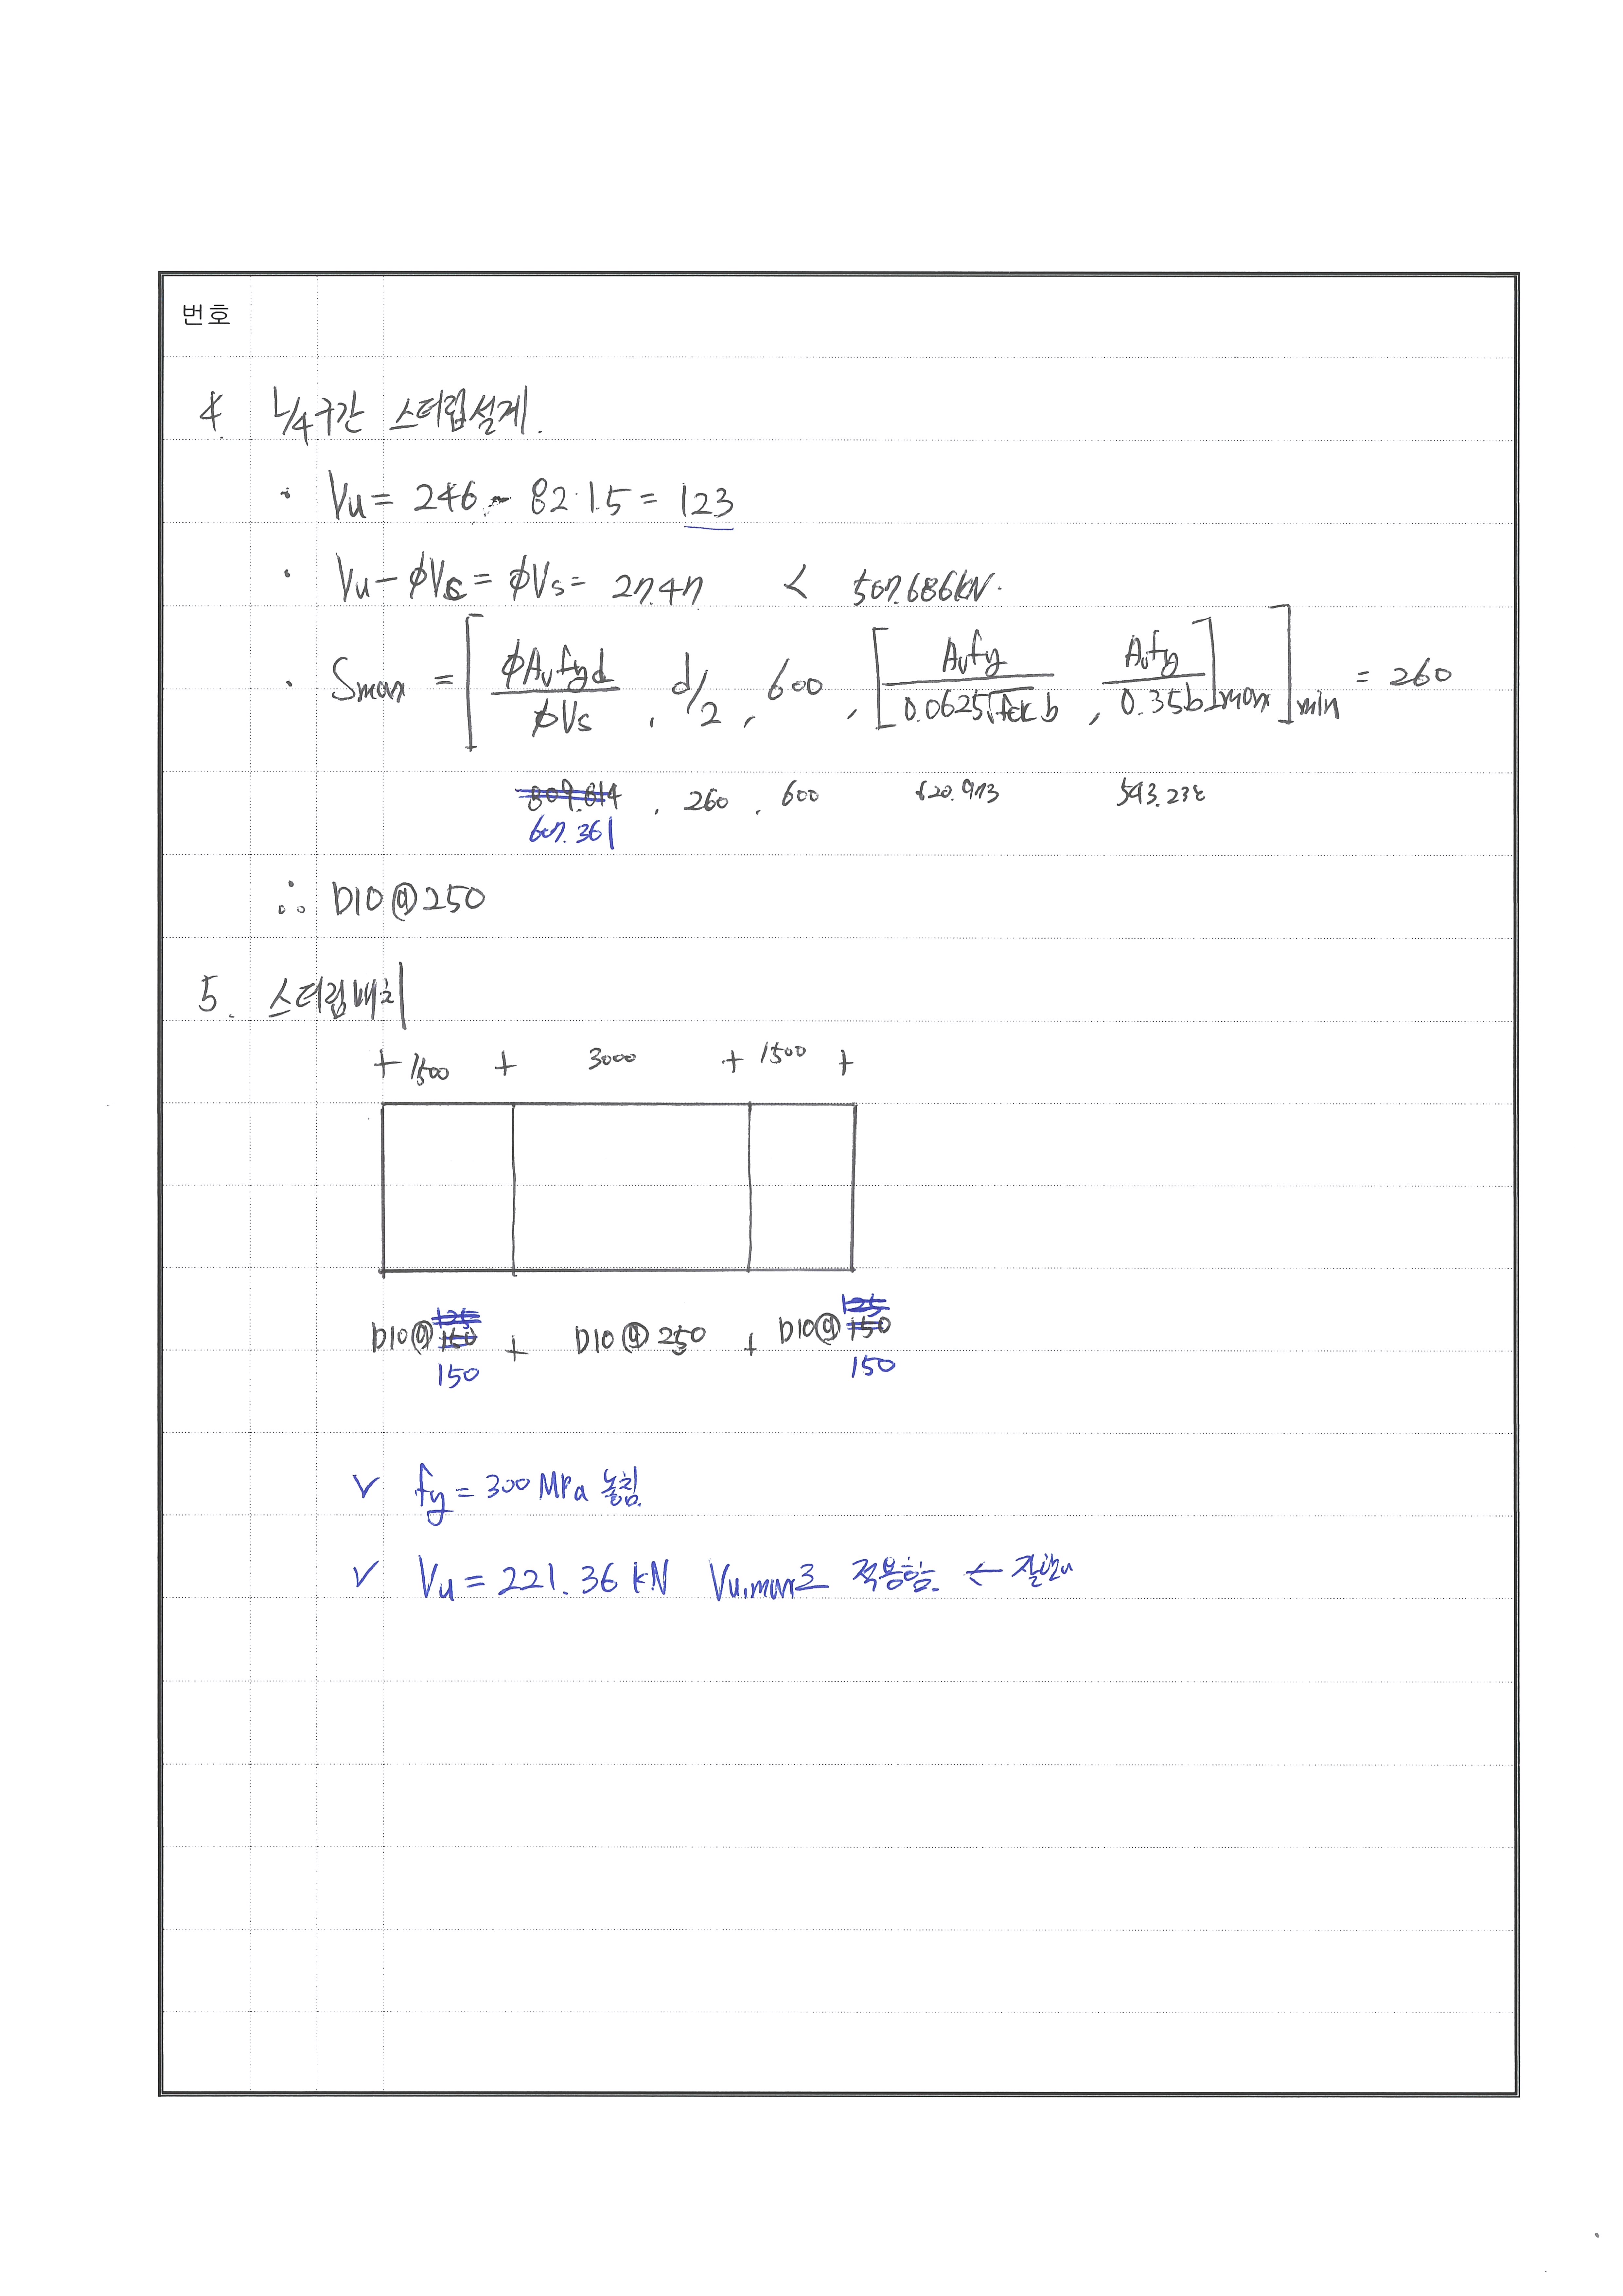 번호
4. L/4구간 스터럽설계.
· Vu = 246 - 82·1.5 = 123
· Vu - ϕVc = ϕVs = 27.47 < 507.686kN.
· Smax = [ ϕAvfyd / ϕVs , d/2 , 600 , [ Avfy / 0.0625√fck b , Avfy / 0.35b ]max ]min = 260
809.814 , 260 , 600 620.973 543.238
607.361
∴ D10@250
5. 스터럽배치
+ 1500 + 3000 + 1500 +
125 125
D10@160 + D10@250 + D10@150
150 150
∨ fy = 300 MPa 놓침
∨ Vu = 221.36 kN Vu,max로 적용함. ←